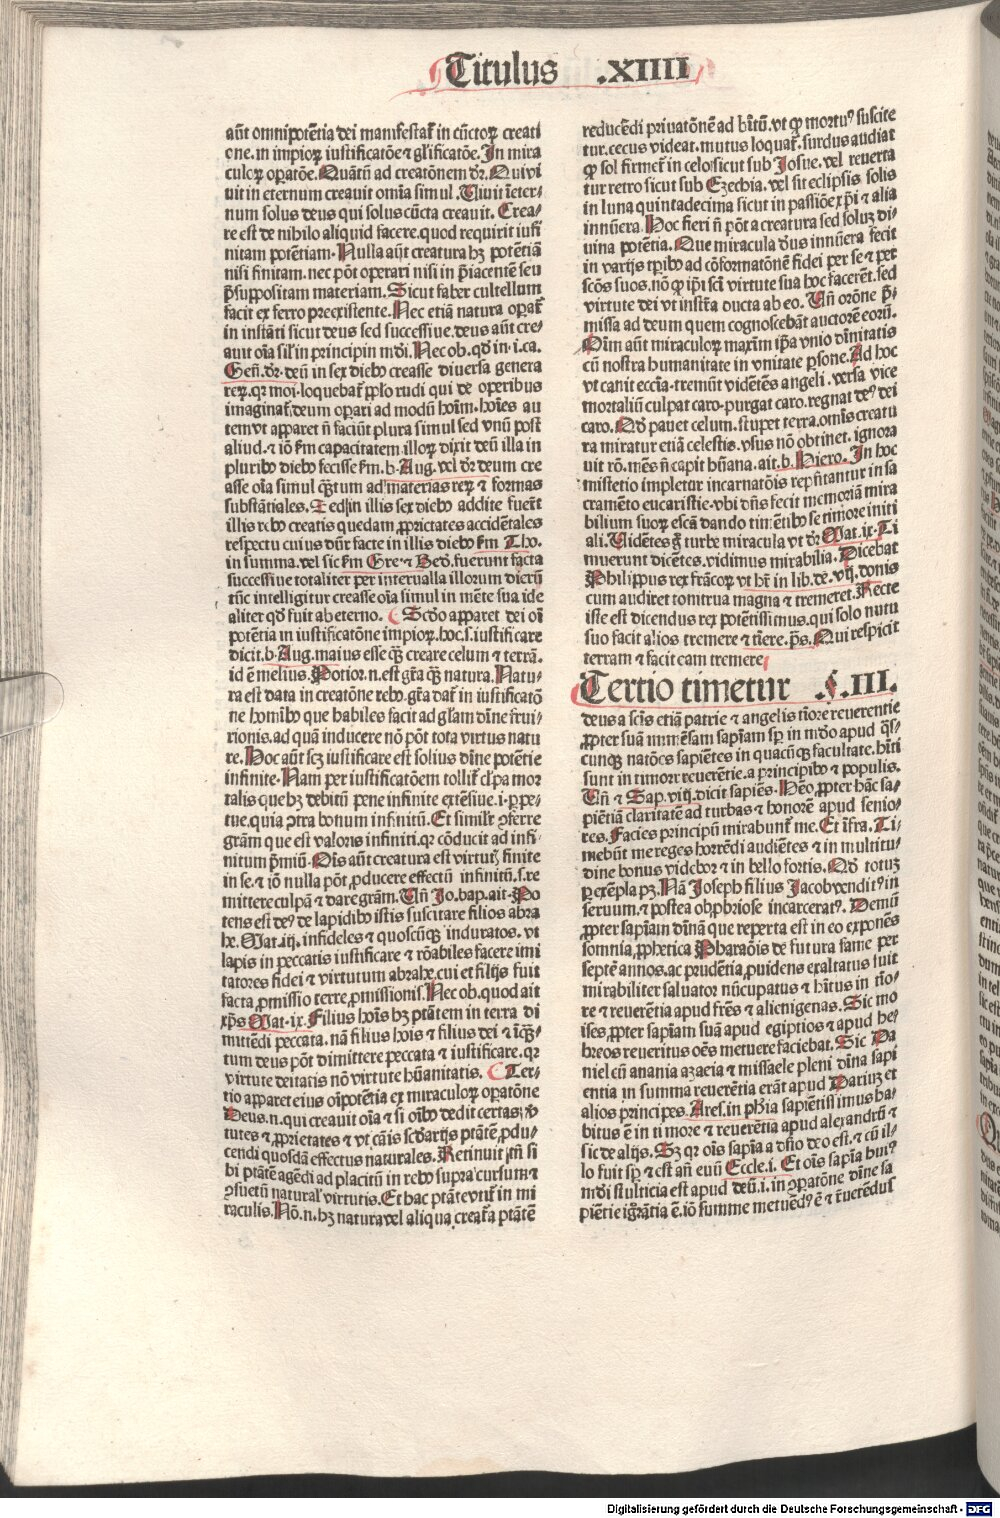 Titulus .XIIII
aūt omnipotētia dei manifestat̄ in cūctoꝝ creati
one. in impioꝝ iustificatōe ⁊ gl̄ificatōe. In mira
culoꝝ oꝑatōe. Quātū ad creatōnem dr̄. Qui vi
uit in eternum creauit omīa simul. Viuit ī eter-
num solus deus qui solus cūcta creauit. Crea-
re est de nihilo aliquid facere. quod requirit ifi
nitam potētiam. Nulla aūt creatura hꝫ potētiā
nisi finitam. nec pōt operari nisi in p̄iacentē seu
p̄suppositam materiam. Sicut faber cultellum
facit ex ferro preexistente. Nec etiā natura oꝑat̄
in instāti sicut deus sed successiue. deus aūt cre-
auit oīa sil̄ in principin mūdi. Nec ob. qd̓ in. i. ca.
Gen̄. dr̄. deū in sex diebꝰ creasse diuersa genera
reꝝ. qꝛ moi. loquebat̄ pplo rudi qui de operibus
imaginat̄. deum oꝑari ad modū hoīm. hoīes au
tem vt apparet n̄ faciūt plura simul sed vnū post
aliud. ⁊ iō ẜm capacitatem illoꝝ dixit deū illa in
pluribꝰ diebꝰ fecisse ẜm. b. Aug. vel dr̄ deum cre
asse oīa simul quātum ad materias reꝝ ⁊ formas
substātiales. Sed in illis sex diebꝰ addite fuerūt
illis rebꝰ creatis quedam ꝓprietates accidētales
respectu cuius dn̄r facte in illis diebꝰ ẜm Tho.
in summa. vel sic ẜm Gre. ⁊ Bed. fuerunt facta
successiue totaliter per interualla illorum dierū
tūc intelligitur creasse oīa simul in mēte sua ide
aliter qd̓ fuit ab eterno. Scd̓o apparet dei oī
potētia in iustificatōne impioꝝ. hoc. s. iustificare
dicit. b. Aug. maius esse qꝫ creare celum ⁊ terrā.
id ē melius. Potior. n. est gr̄a qꝫ natura. Natu-
ra est data in creatōne rebꝰ. gr̄a dat̄ in iustificatō
ne homībꝰ que habiles facit ad gl̄am diuīe frui-
tionis. ad quā inducere nō pōt tota virtus natu
re. Hoc aūt scꝫ iustificare est solius diuīe potētie
infinite. Nam per iustificatōem tollit̄ cl̓pa mor
talis que hꝫ debitū pene infinite extēsiue. i. ꝑpe-
tue. quia ꝯtra bonum infinitū. Et simil̓r ꝯferre
gr̄am que est valoris infiniti. qꝛ cōducit ad infi-
nitum p̄miū. Oīs aūt creatura est virtutꝭ finite
in se. ⁊ iō nulla pōt ꝓducere effectū infinitū. s. re
mittere culpā ⁊ dare gr̄am. Un̄ Io. bap. ait. Po
tens est deꝰ de lapidibꝰ istis suscitare filios abra
he. Mat. iij. infideles ⁊ quoscūqꝫ induratos. vt
lapis in peccatis iustificare ⁊ rōabiles facere imi
tatores fidei ⁊ virtutum abrahe. cui et filijs fuit
facta ꝓmissio terre ꝓmissionis. Nec ob. quod ait
xp̄s Mat. ix. Filius hoīs hꝫ ptātem in terra di
mittēdi peccata. nā filius hoīs ē filius dei ⁊ īqꝫ-
tum deus pōt dimittere peccata ⁊ iustificare. qꝛ
virtute deitatis nō virtute hūanitatis. Ter-
tio apparet eius oīpotētia ex miraculoꝝ oꝑatōne
Deus. n. qui creauit oīa ⁊ si oībꝰ dedit certas vir
tutes ⁊ ꝓprietates ⁊ vt cāis scd̓arijs ptātē ꝓdu-
cendi quosdā effectus naturales. Retinuit tn̄ si
bi ptātē agēdi ad placitū in rebꝰ supra cursum ⁊
ꝯsuetū natural̓ virtutis. Et hac ptāte vtit̄ in mi
raculis. Nō. n. hꝫ natura vel aliqua creat̄a ptātē
reducēdi priuatōnē ad hītū. vt ꝙ mortuꝰ suscite
tur. cecus videat. mutus loquat̄. surdus audiat
ꝙ sol firmet̄ in celo sicut sub Iosue. vel reuerta
tur retro sicut sub Ezechia. vel fit eclipsis solis
in luna quintadecima sicut in passiōe xp̄i ⁊ alia
innūera. Hoc fieri n̄ pōt a creatura sed soluꝫ di-
uina potētia. Que miracula d̓us innūera fecit
in varijs tꝑibꝰ ad cōformatōnē fidei per se ⁊ per
scōs suos. nō ꝙ ip̄i sc̄i virtute sua hoc facerēt. sed
virtute dei vt instr̄a ducta ab eo. Un̄ orōne p̄-
missa ad deum quem cognoscebāt auctorē eorū.
Oīm aūt miraculoꝝ maxim̄ ip̄a vnio diuīnitatis
cū nostra humanitate in vnitate ꝑsone. Ad hoc
vt canit ecc̄ia. tremūt vidētēs angeli. versa vice
mortaliū culpat caro. purgat caro. regnat deꝰ dei
caro. Qd̓ pauet celum. stupet terra. omīs creatu
ra miratur etiā celestis. vsus nō obtinet. ignora
uit rō. mēs n̄ capit hūana. ait. b. Hiero. In hoc
misterio impletur incarnatōis rep̄ntantur in sa
cramēto eucaristie. vbi dn̄s fecit memoriā mira
bilium suoꝝ escā dando timētibꝰ se timore initi
ali. Vidētes ḡ turbe miracula vt dr̄ Mat. ix. Ti
muerunt dicētes. vidimus mirabilia. Dicebat
Philippus rex frācoꝝ vt hr̄ in lib. de. vij. donis
cum audiret tonitrua magna ⁊ tremeret. Recte
iste est dicendus rex potētissimus. qui solo nutu
suo facit alios tremere ⁊ tīere. ps. Qui respicit
terram ⁊ facit eam tremere
Tertio timetur .§.III.
deus a sc̄is etiā patrie ⁊ angelis tīore reuerentie
ꝓpter suā immēsam sapīam sp̄ in mūdo apud qꝫs-
cunqꝫ natōes sapiētes in quacūqꝫ facultate. hīti
sunt in timore reuerētie. a principibꝰ ⁊ populis.
Un̄ ⁊ Sap. viij. dicit sapiēs. Hēo ꝓpter hāc sa-
piētiā claritatē ad turbas ⁊ honorē apud senio-
res. Facies principū mirabunt̄ me. Et īfra. Ti-
mebūt me reges horrēdi audiētes ⁊ in multitu-
dine bonus videbor ⁊ in bello fortis. Qd̓ totuꝫ
ꝑ exēpla pꝫ. Nā Ioseph filius Iacob venditꝰ in
seruum. ⁊ postea obꝓbriose incarceratꝰ. Demū
ꝓpter sapīam diuīnā que reperta est in eo exponēs
somnia. ꝓphetica Pharaōis de futura fame per
septē annos. ac prudētia ꝓuidens exaltatus fuit
mirabiliter saluator nūcupatus ⁊ hītus in tīo-
re ⁊ reuerētia apud frēs ⁊ alienigenas. Sic mo
ises ꝓpter sapīam suā apud egiptios ⁊ apud he-
breos reueritus oēs metuere faciebat. Sic Da
niel cū anania azaria ⁊ missaele pleni diuīna sapi
entia in summa reuerētia erāt apud Darium et
alios principes. Ares. in phīa sapiētissimus ha-
bitus ē in timore ⁊ reuerētia apud alexandrū ⁊
sic de alijs. Sꝫ qꝛ oīs sapīa a dn̄o deo est. ⁊ cū il-
lo fuit sp̄ ⁊ est an̄ euū Eccle. i. Et oīs sapīa huiꝰ
mūdi stulticia est apud deū. i. in ꝯꝑatōne diuīne sa
piētie igr̄antia ē. iō summe metuēdꝰ ē ⁊ reuerēdus
Digitalisierung gefördert durch die Deutsche Forschungsgemeinschaft - DFG